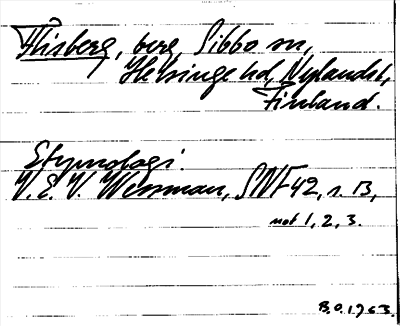 Flisberg, berg, Sibbo sn,
Helsinge hd, Nylands l,
Finland.
Etymologi:
V. E. V. Wessman, SNF 42, s. 13,
not 1, 2, 3.
B. O. 1963.